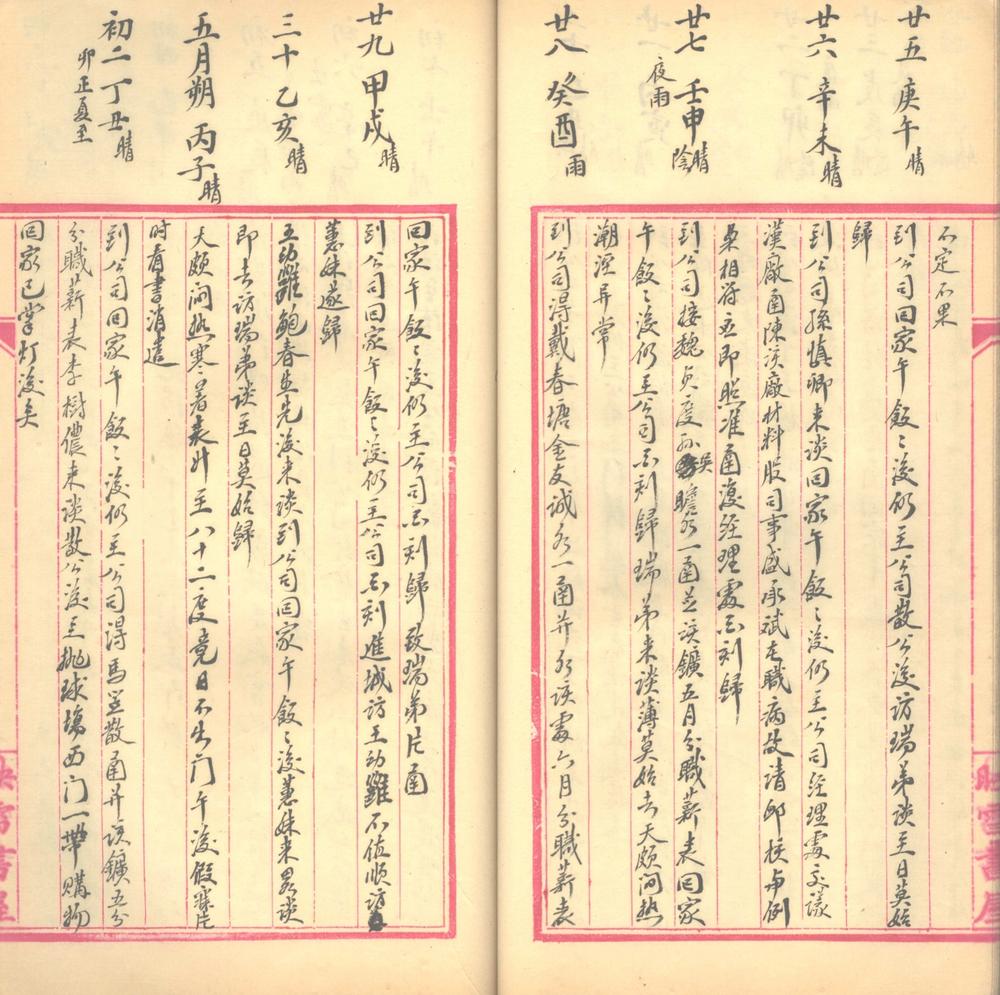 不定不果
廿五 庚午 晴
到公司回家午飯飯後仍至公司散公後訪瑞弟談至日莫始
歸
廿六 辛未 晴
到公司孫慎卿來談回家午飯飯後仍至公司經理處交議
漢廠函陳該廠材料股司事盛承斌在職病故請卹核與例
案相符立即照准函復經理處酉刻歸
廿七 壬申 晴 陰
夜雨
到公司接魏貞度孫吳瞻 一函並該鑛五月分職薪表回家
午飯飯後仍至公司酉刻歸瑞弟來談薄莫始去天頗悶熱
潮溼異常
廿八 癸酉 雨
到公司得戴春塘金友誠各一函并 該處六月分職薪表
回家午飯飯後仍至公司酉刻歸致瑞弟片函
廿九 甲戌 晴
到公司回家午飯飯後仍至公司酉刻進城訪王幼 不值順訪
蕙妹遂歸
三十 乙亥 晴
王幼 鮑春生先後來談到公司回家午飯飯後蕙妹來畧談
即去訪瑞弟談至日莫始歸
五月朔 丙子 晴
天頗悶熱寒暑表升至八十二度竟日不出門午後假寐片
時看書消遣
初二 丁丑 晴
卯正夏至
到公司回家午飯飯後仍至公司得馬笠散函并該鑛五分
分職薪表李樹儂來談散公後至拋球場西門一帶購物
回家已掌灯後矣
映雪書屋